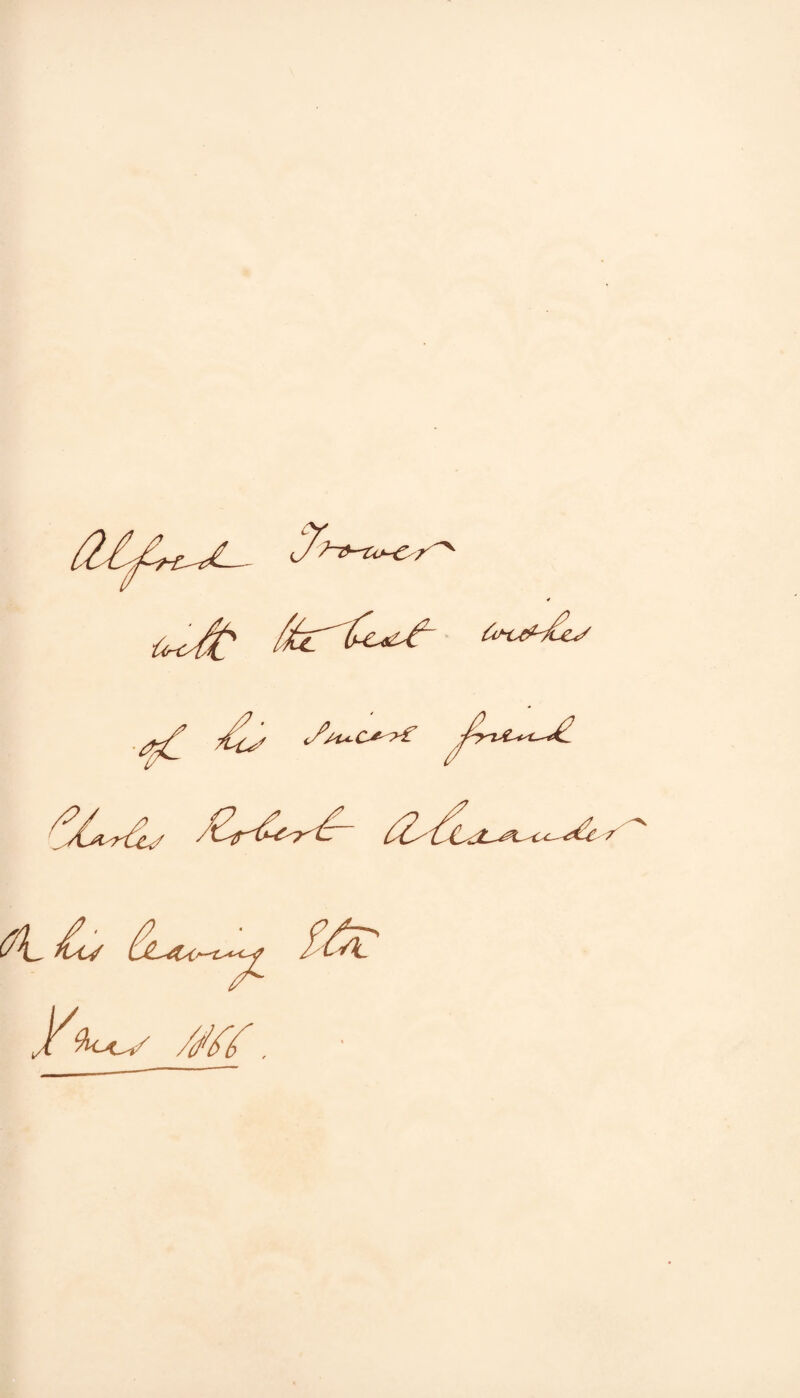 Alfred Trower
with the best wishes
of his sincere friend
Charles Robert Alexander
On his leaving Eton
Xmas 1866.